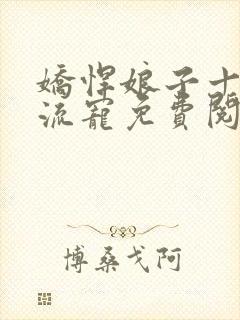 嬌悍娘子十
流寵免費閱
博桑戈阿